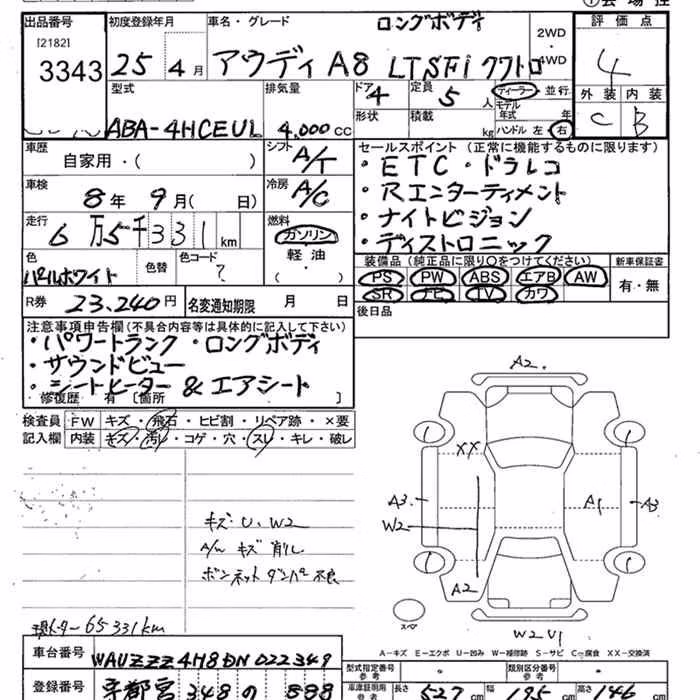 出品番号 初度登録年月 車名・グレード ロングボディ 2WD・4WD 評価点
[2182]
3343 25年4月 アウディ A8 LTSFiクワトロ 4
型式 排気量 ドア 4 定員 5人 ディーラー・並行 外装 内装
ABA-4HCEUL 4,000cc 形状 積載 kg モデル年式 年 ハンドル 左・右 C B
車歴 自家用・( ) シフト A/T セールスポイント(正常に機能するものに限ります)
・ETC・ドラレコ
車検 8年9月( 日) 冷房 A/C ・Rエンターティメント
・ナイトビジョン
走行 6万5千331km 燃料 ガソリン 軽油 ( ) ・ディストロニック
色 パールホワイト 色替 色コード ?
装備品(純正品に限り○をつけてください) 新車保証書
PS PW ABS エアB AW 有・無
SR ナビ TV カワ
R券 23,240円 名変通知期限 月 日 後日品
注意事項申告欄(不具合内容等は具体的に記入して下さい)
・パワートランク・ロングボディ
・サウンドビュー
・シートヒーター & エアシート
修復歴 有〔箇所 〕
検査員 FW キズ・飛石・ヒビ割・リペア跡・×要
記入欄 内装 キズ・汚レ・コゲ・穴・スレ・キレ・破レ
A2
XX
A3 A1 A3
W2
A2
キズ・U、W2
A/W キズ 削レ
ボンネットダンパー不良
スペア
W2 U1
65331km
A-キズ E-エクボ U-凹み W-補修跡 S-サビ C-腐食 XX-交換済
車台番号 WAUZZZ4H8DN022349
型式指定番号 参考 類別区分番号 参考
登録番号 宇都宮 348 の 888
車庫証明用 参考 長さ 527cm 幅 195cm 高さ 146cm